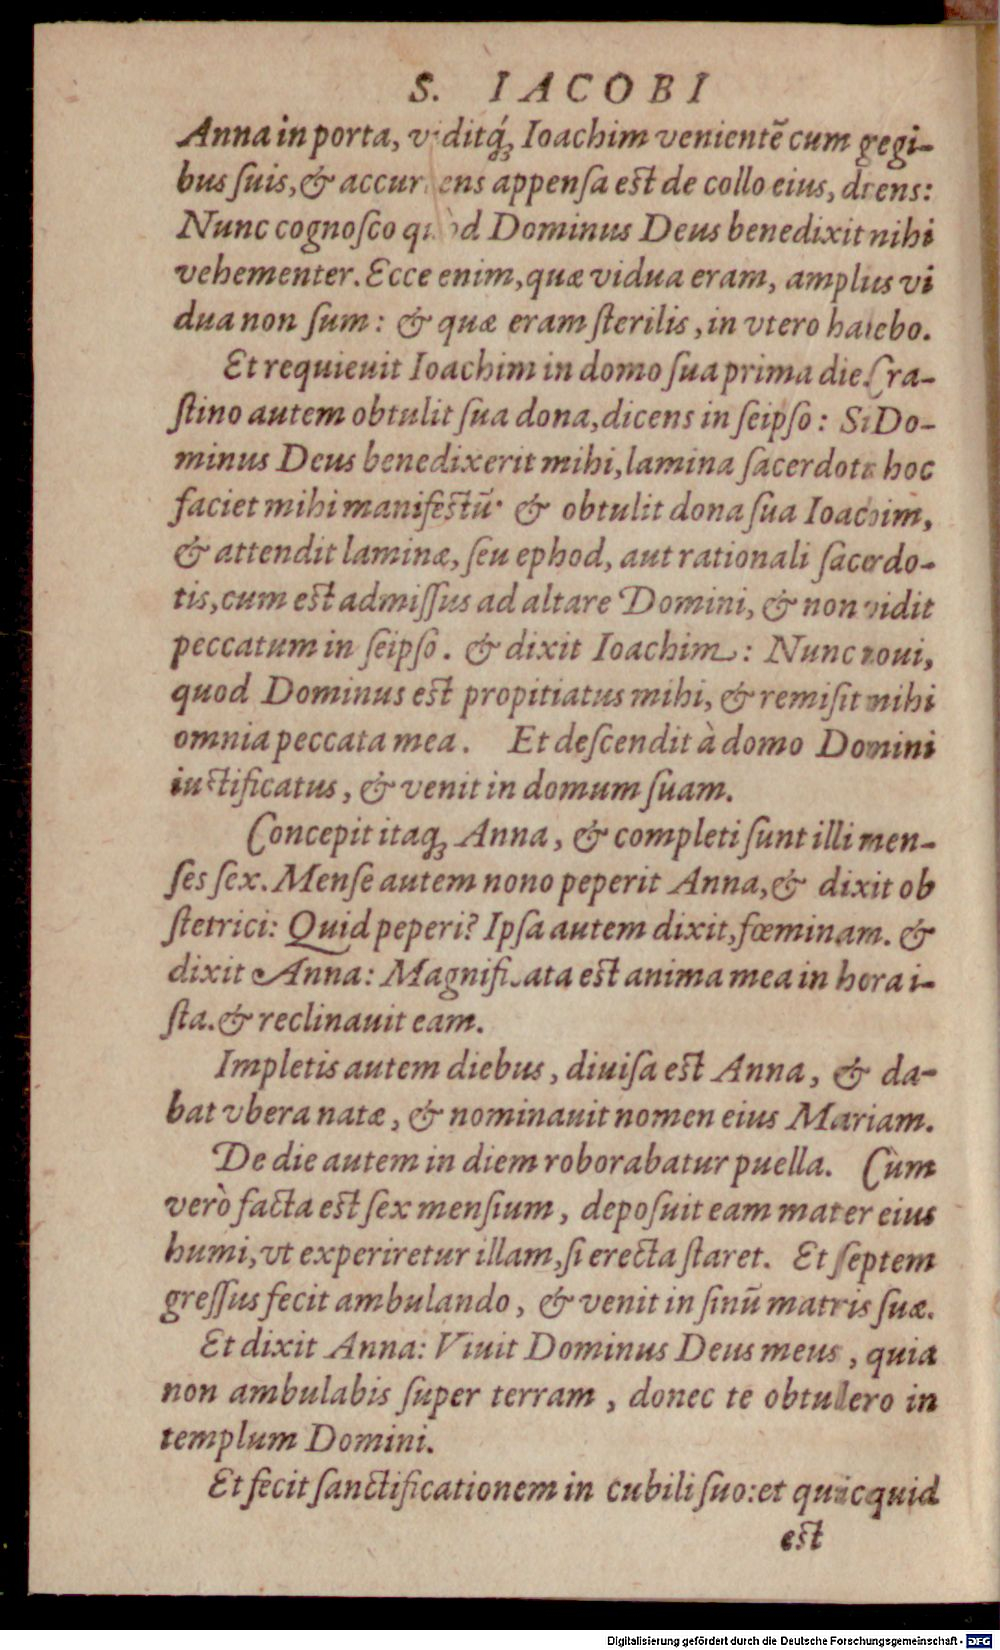 S. IACOBI
Anna in porta, viditq́; Ioachim venientē cum gegi-
bus suis, & accurrens appensa est de collo eius, dicens:
Nunc cognosco quòd Dominus Deus benedixit mihi
vehementer. Ecce enim, quæ vidua eram, amplius vi
dua non sum: & quæ eram sterilis, in vtero habebo.
Et requieuit Ioachim in domo sua prima die. Cra-
stino autem obtulit sua dona, dicens in seipso: Si Do-
minus Deus benedixerit mihi, lamina sacerdotis hoc
faciet mihi manifestū· & obtulit dona sua Ioachim,
& attendit laminæ, seu ephod, aut rationali sacerdo-
tis, cum est admissus ad altare Domini, & non vidit
peccatum in seipso. & dixit Ioachim: Nunc noui,
quod Dominus est propitiatus mihi, & remisit mihi
omnia peccata mea. Et descendit à domo Domini
iustificatus, & venit in domum suam.
Concepit itaq; Anna, & completi sunt illi men-
ses sex. Mense autem nono peperit Anna, & dixit ob
stetrici: Quid peperi? Ipsa autem dixit, fœminam. &
dixit Anna: Magnificata est anima mea in hora i-
sta. & reclinauit eam.
Impletis autem diebus, diuisa est Anna, & da-
bat vbera natæ, & nominauit nomen eius Mariam.
De die autem in diem roborabatur puella. Cùm
verò facta est sex mensium, deposuit eam mater eius
humi, vt experiretur illam, si erecta staret. Et septem
gressus fecit ambulando, & venit in sinū matris suæ.
Et dixit Anna: Viuit Dominus Deus meus, quia
non ambulabis super terram, donec te obtulero in
templum Domini.
Et fecit sanctificationem in cubili suo: et quicquid
est
Digitalisierung gefördert durch die Deutsche Forschungsgemeinschaft - DFG